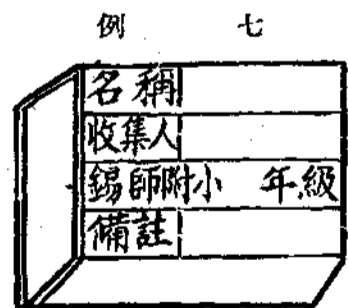 例 七
名稱
收集人
錫師附小 年級
備註